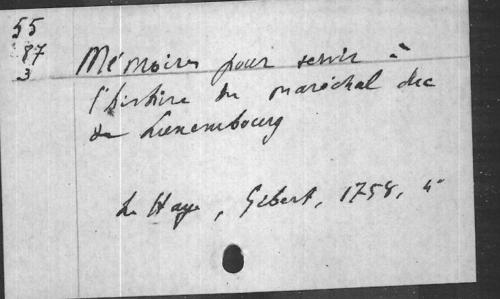 55
87
3
Mémoires pour servir à
l'histoire du maréchal duc
de Luxembourg
La Haye, Gibert, 1758, 4°